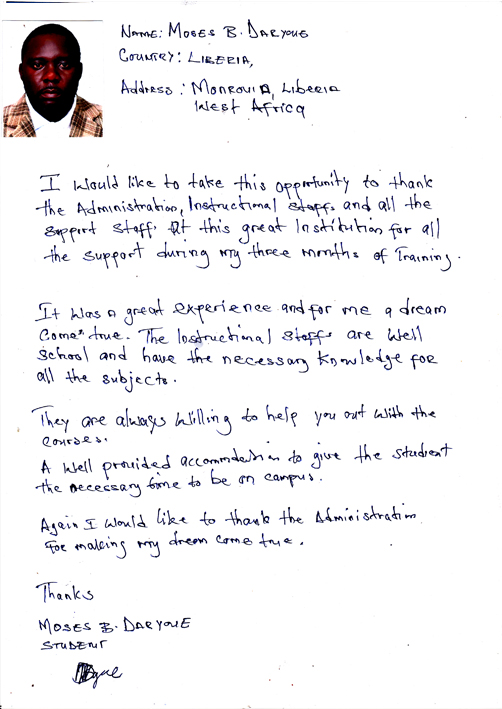 NAME: MOSES B. DARYOUE
COUNTRY: LIBERIA,
Address: MONROVIA, Liberia
West Africa
I would like to take this opportunity to thank
the Administration, Instructional staffs and all the
support staffs at this great Institution for all
the support during my three months of Training.
It was a great experience and for me a dream
come true. The Instructional staffs are well
school and have the necessary knowledge for
all the subjects.
They are always willing to help you out with the
courses.
A well provided accommodation to give the student
the necessary time to be on campus.
Again I would like to thank the Administration
for making my dream come true.
Thanks
MOSES B. DARYOUE
STUDENT